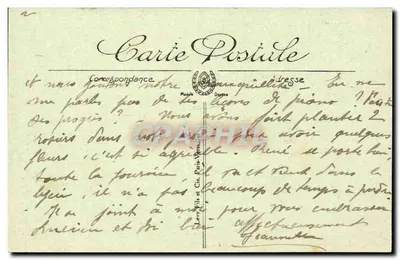 Carte Postale
Correspondance Adresse
et nous goûtons notre tranquillité - Tu ne
me parles pas de tes leçons de piano ? Fais-tu
des progrès ? Nous avons fait planter 2
rosiers dans pour avoir quelques
fleurs, c'est si agréable. René se porte bien,
toute la journée il va et vient dans le
lycée, il n'a pas beaucoup de temps à perdre.
Il se joint à moi pour vous embrasser
Lucien et toi bien affectueusement
Jeannette
Levy Fils et Cie, Paris